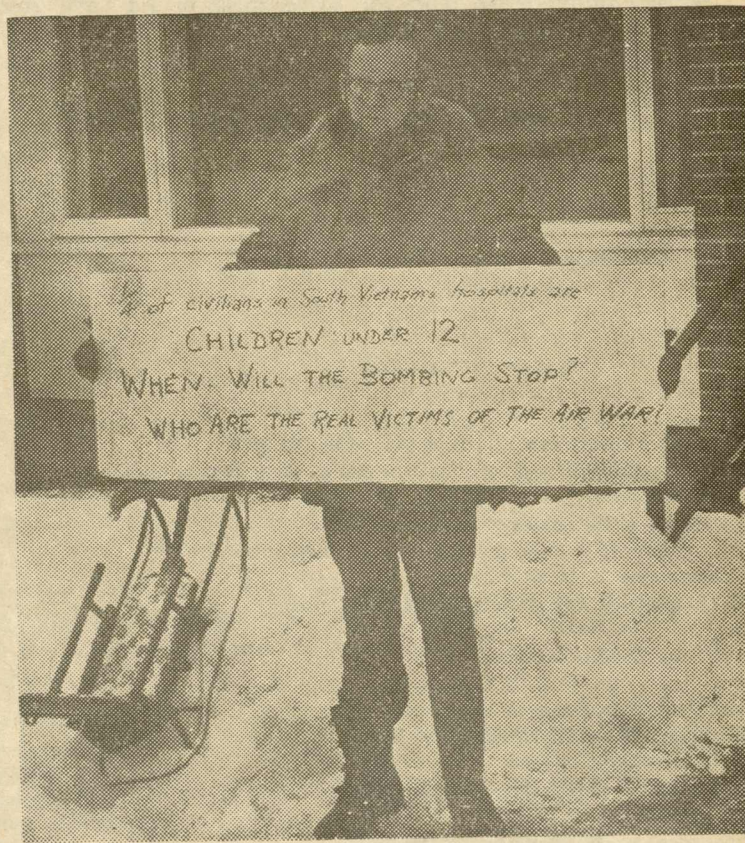 1/4 of civilians in South Vietnam's hospitals are
CHILDREN UNDER 12
WHEN WILL THE BOMBING STOP?
WHO ARE THE REAL VICTIMS OF THE AIR WAR?